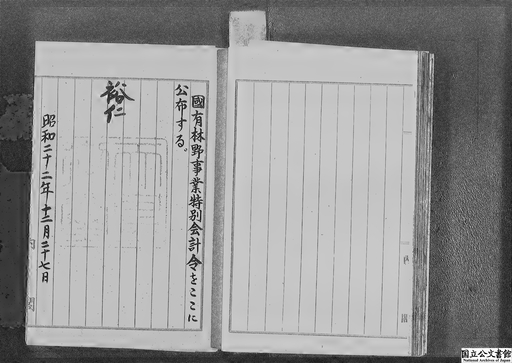 國有林野事業特別会計令をここに
公布する。
裕仁
昭和二十二年十二月二十七日
国立公文書館
National Archives of Japan